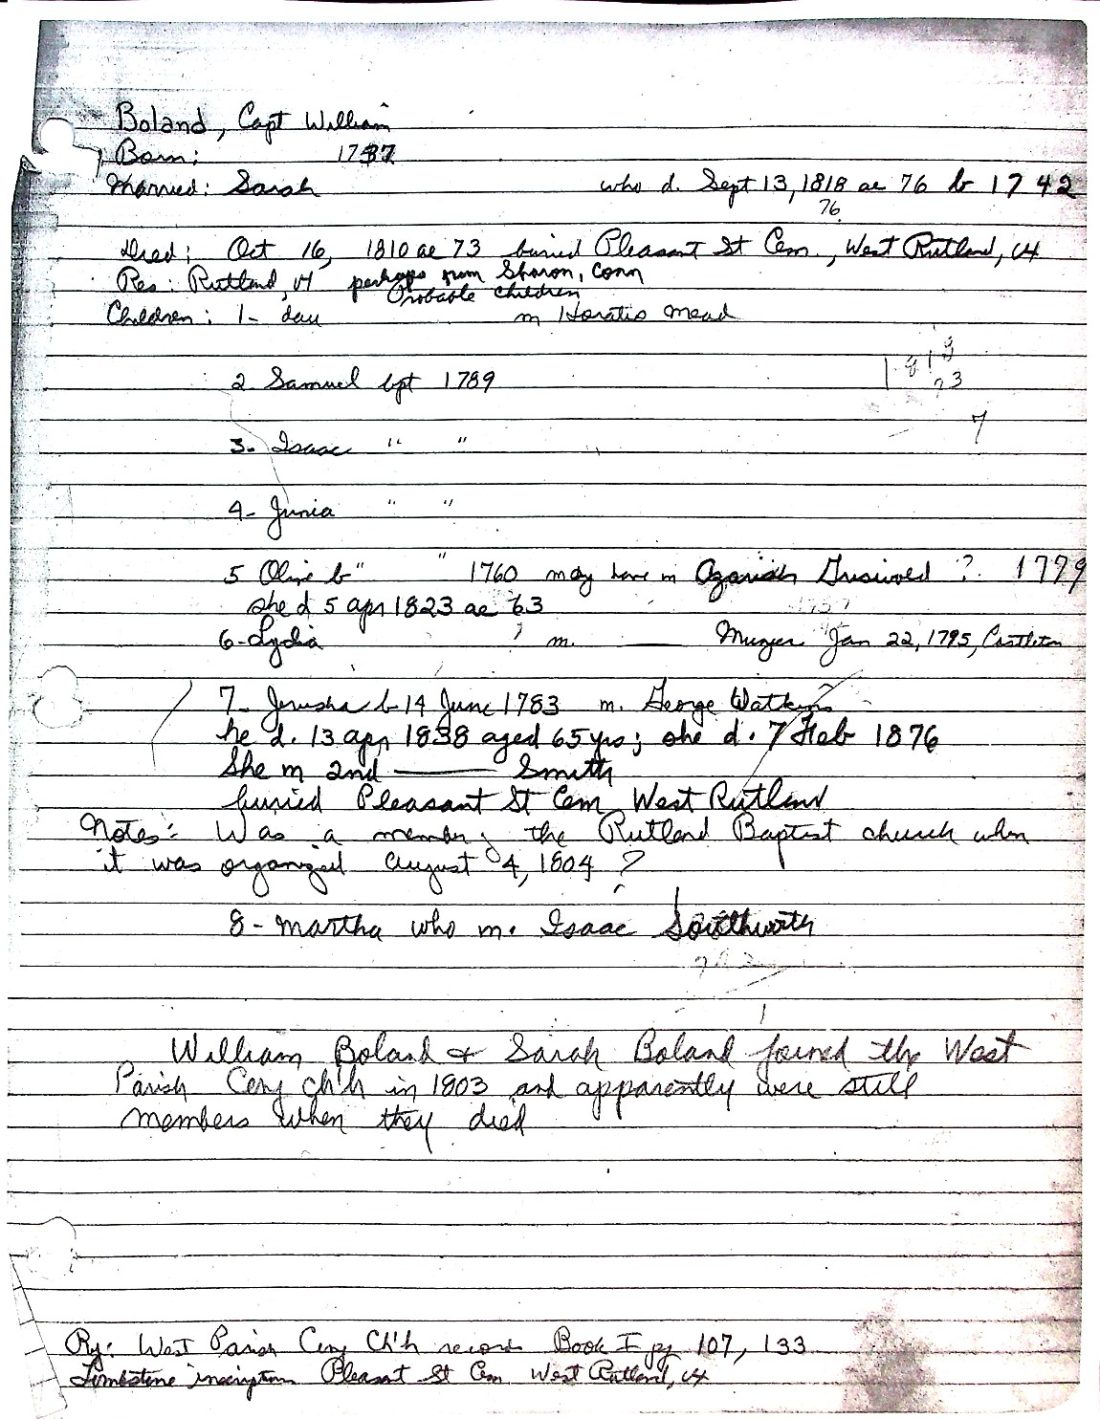 Boland, Capt William
Born: 1737
Married: Sarah who d. Sept 13, 1818 ae 76 b 1742
76
Died: Oct 16, 1810 ae 73 buried Pleasant St Cem., West Rutland, Vt
Res: Rutland, Vt perhaps from Sharon, Conn
Probable children
Children: 1- dau m Horatio Mead
1818
73
2 Samuel bpt 1789
7
3- Isaac " "
4- Junia " "
5 Olive b" " 1760 may have m Azariah Griswold ? 1779
she d 5 apr 1823 ae 63
6- Lydia ? m. Jan 22, 1795, Castleton
7- Jerusha b 14 June 1783 m. George Watkins
he d. 13 apr 1838 aged 65 yrs; she d. 7 Feb 1876
She m 2nd —— Smith
buried Pleasant St Cem West Rutland
Notes: Was a member of the Rutland Baptist church when
it was organized August 4, 1804 ?
8- Martha who m. Isaac Southworth
William Boland & Sarah Boland joined the West
Parish Cong Ch'h in 1803 and apparently were still
members when they died
West Parish Cong Ch'h records Book I pg 107, 133
Tombstone inscription Pleasant St Cem West Rutland, Vt